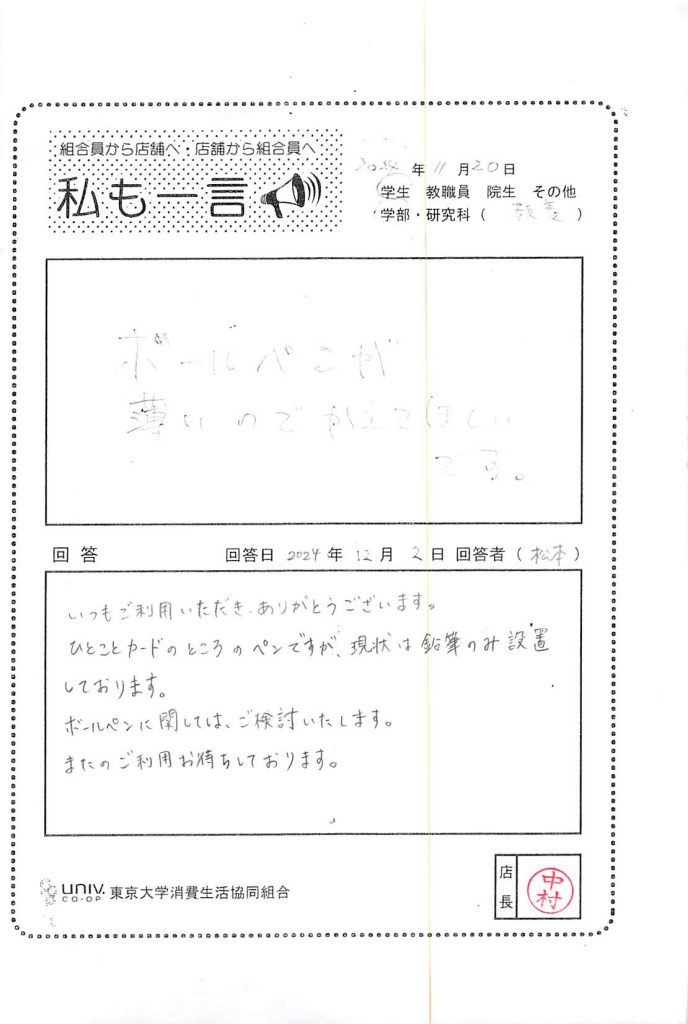 組合員から店舗へ・店舗から組合員へ
私も一言
2024年11月20日
学生 教職員 院生 その他
学部・研究科（教養）
ボールペンが
薄いのでかえてほしい
です。
回答 回答日 2024年12月2日 回答者（松本）
いつもご利用いただき、ありがとうございます。
ひとことカードのところのペンですが、現状は鉛筆のみ設置
しております。
ボールペンに関しては、ご検討いたします。
またのご利用お待ちしております。
UNIV. CO-OP 東京大学消費生活協同組合
店長 中村